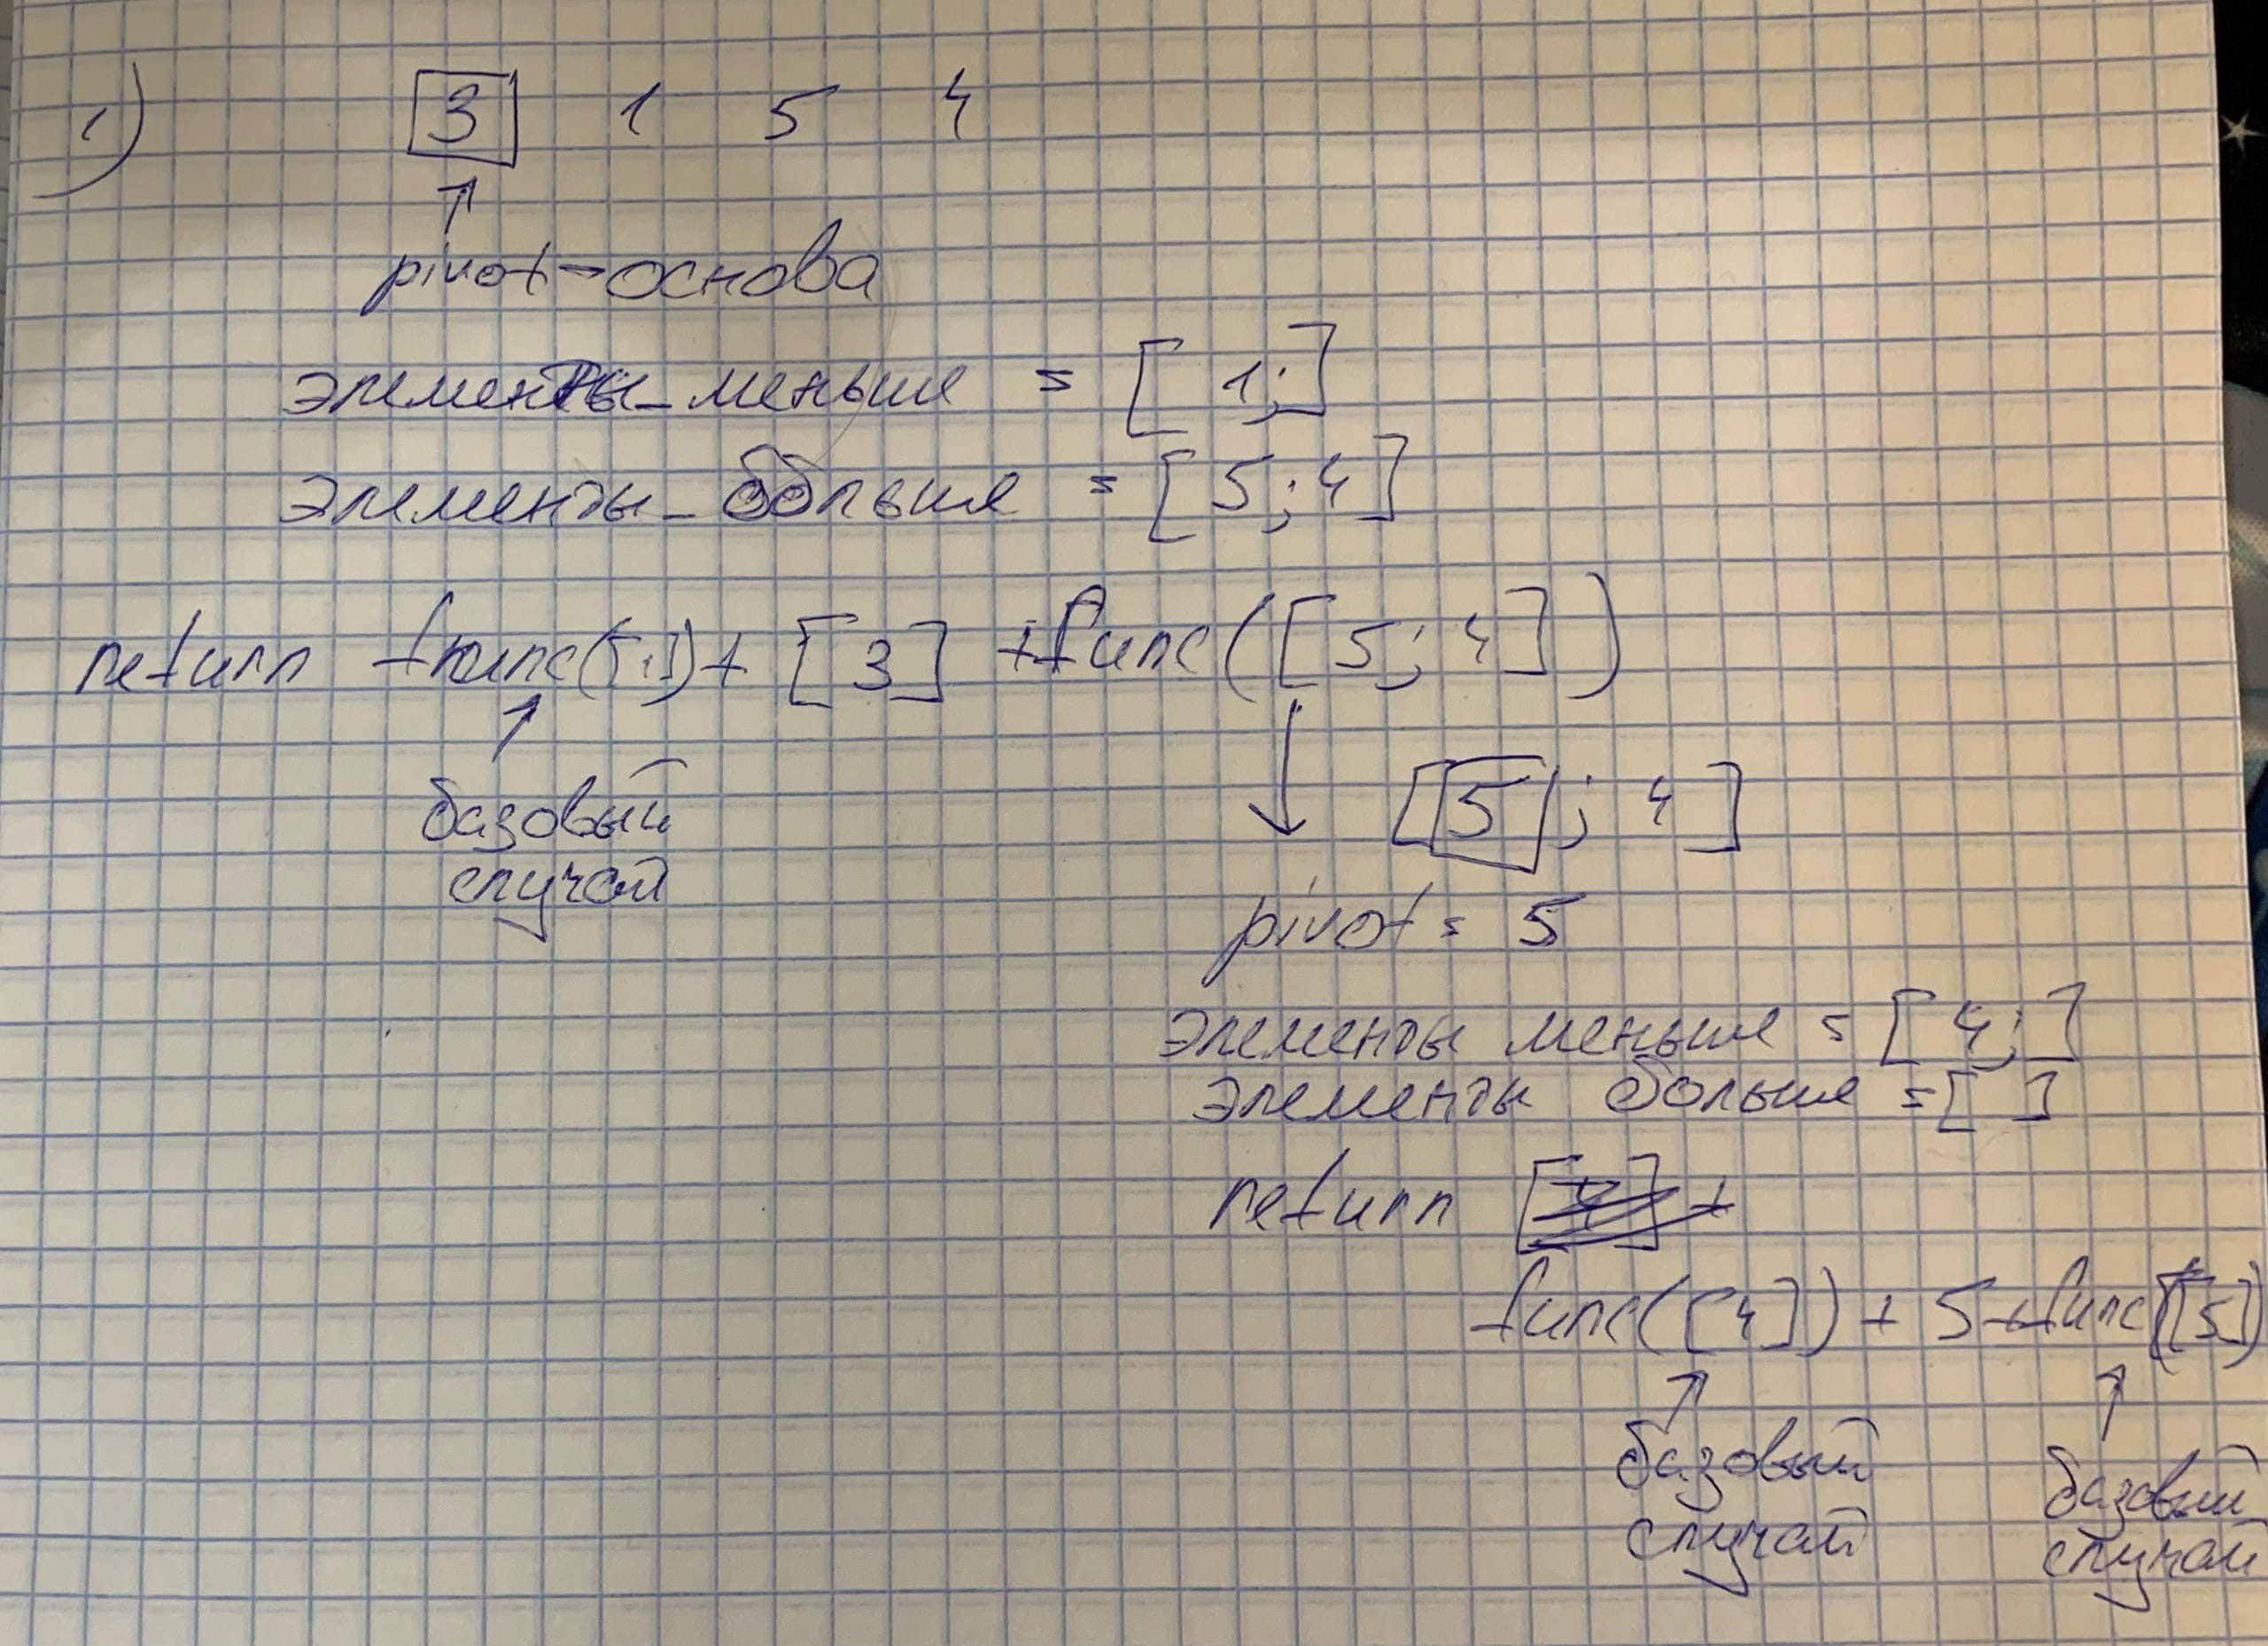 1) 3 1 5 4
pivot - основа
элементы_меньше = [1;]
элементы_больше = [5;4]
return func([1]) + [3] + func([5;4])
базовый
случай
[5; 4]
pivot = 5
элементы меньше = [4;]
элементы больше = [ ]
return +
func([4]) + 5 + func([5])
базовый базовый
случай случай